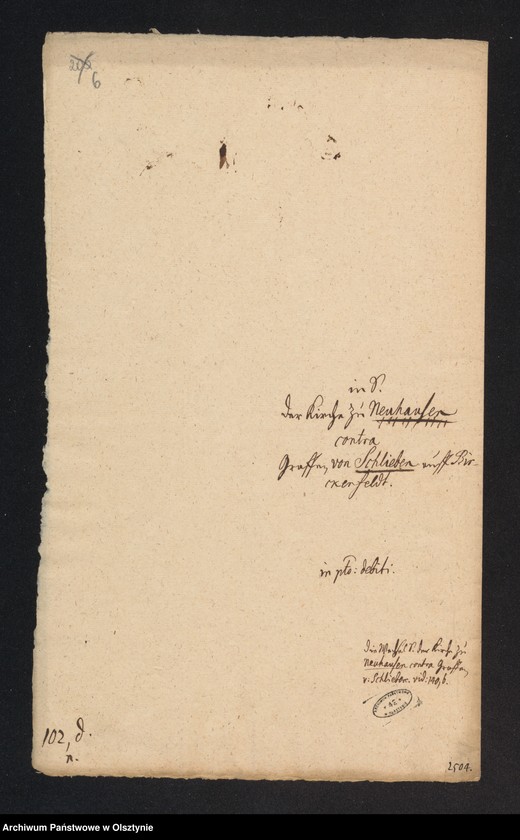 6
in S.
der Kirche zu Neuhausen
contra
Graffen von Schlieben auff Bir-
ckenfeldt.
in pto: debiti.
die S. der Kirche zu
Neuhausen contra Graffen
v. Schlieben. vid:
102, d.
n.
2504.
Archiwum Państwowe w Olsztynie